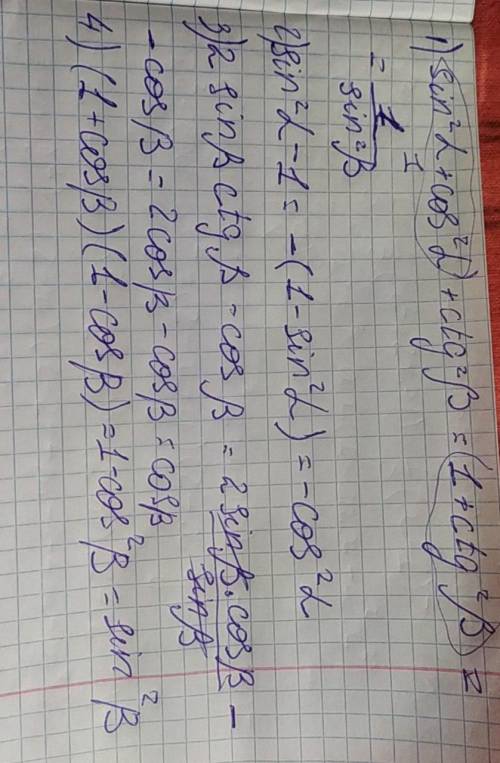 1) sin²α + cos²α) + ctg²β = (1 + ctg²β) =
1
= 1/sin²β
2) sin²α - 1 = -(1 - sin²α) = -cos²α
3) 2 sinβ ctgβ - cosβ = 2 sinβ · cosβ/sinβ -
- cosβ = 2cosβ - cosβ = cosβ
4) (1 + cosβ)(1 - cosβ) = 1 - cos²β = sin²β